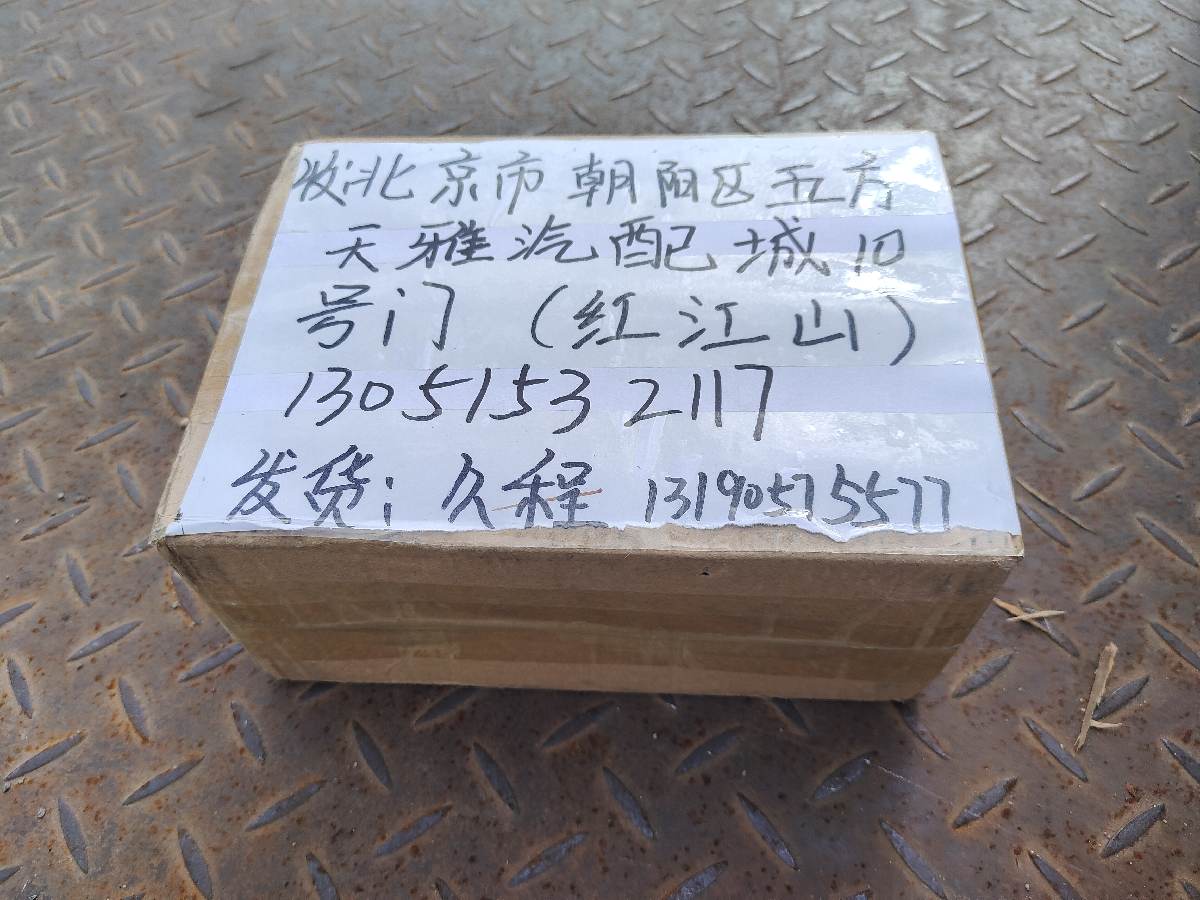 收:北京市朝阳区五方
天雅汽配城10
号门（红江山）
13051532117
发货: 久程 13190575577